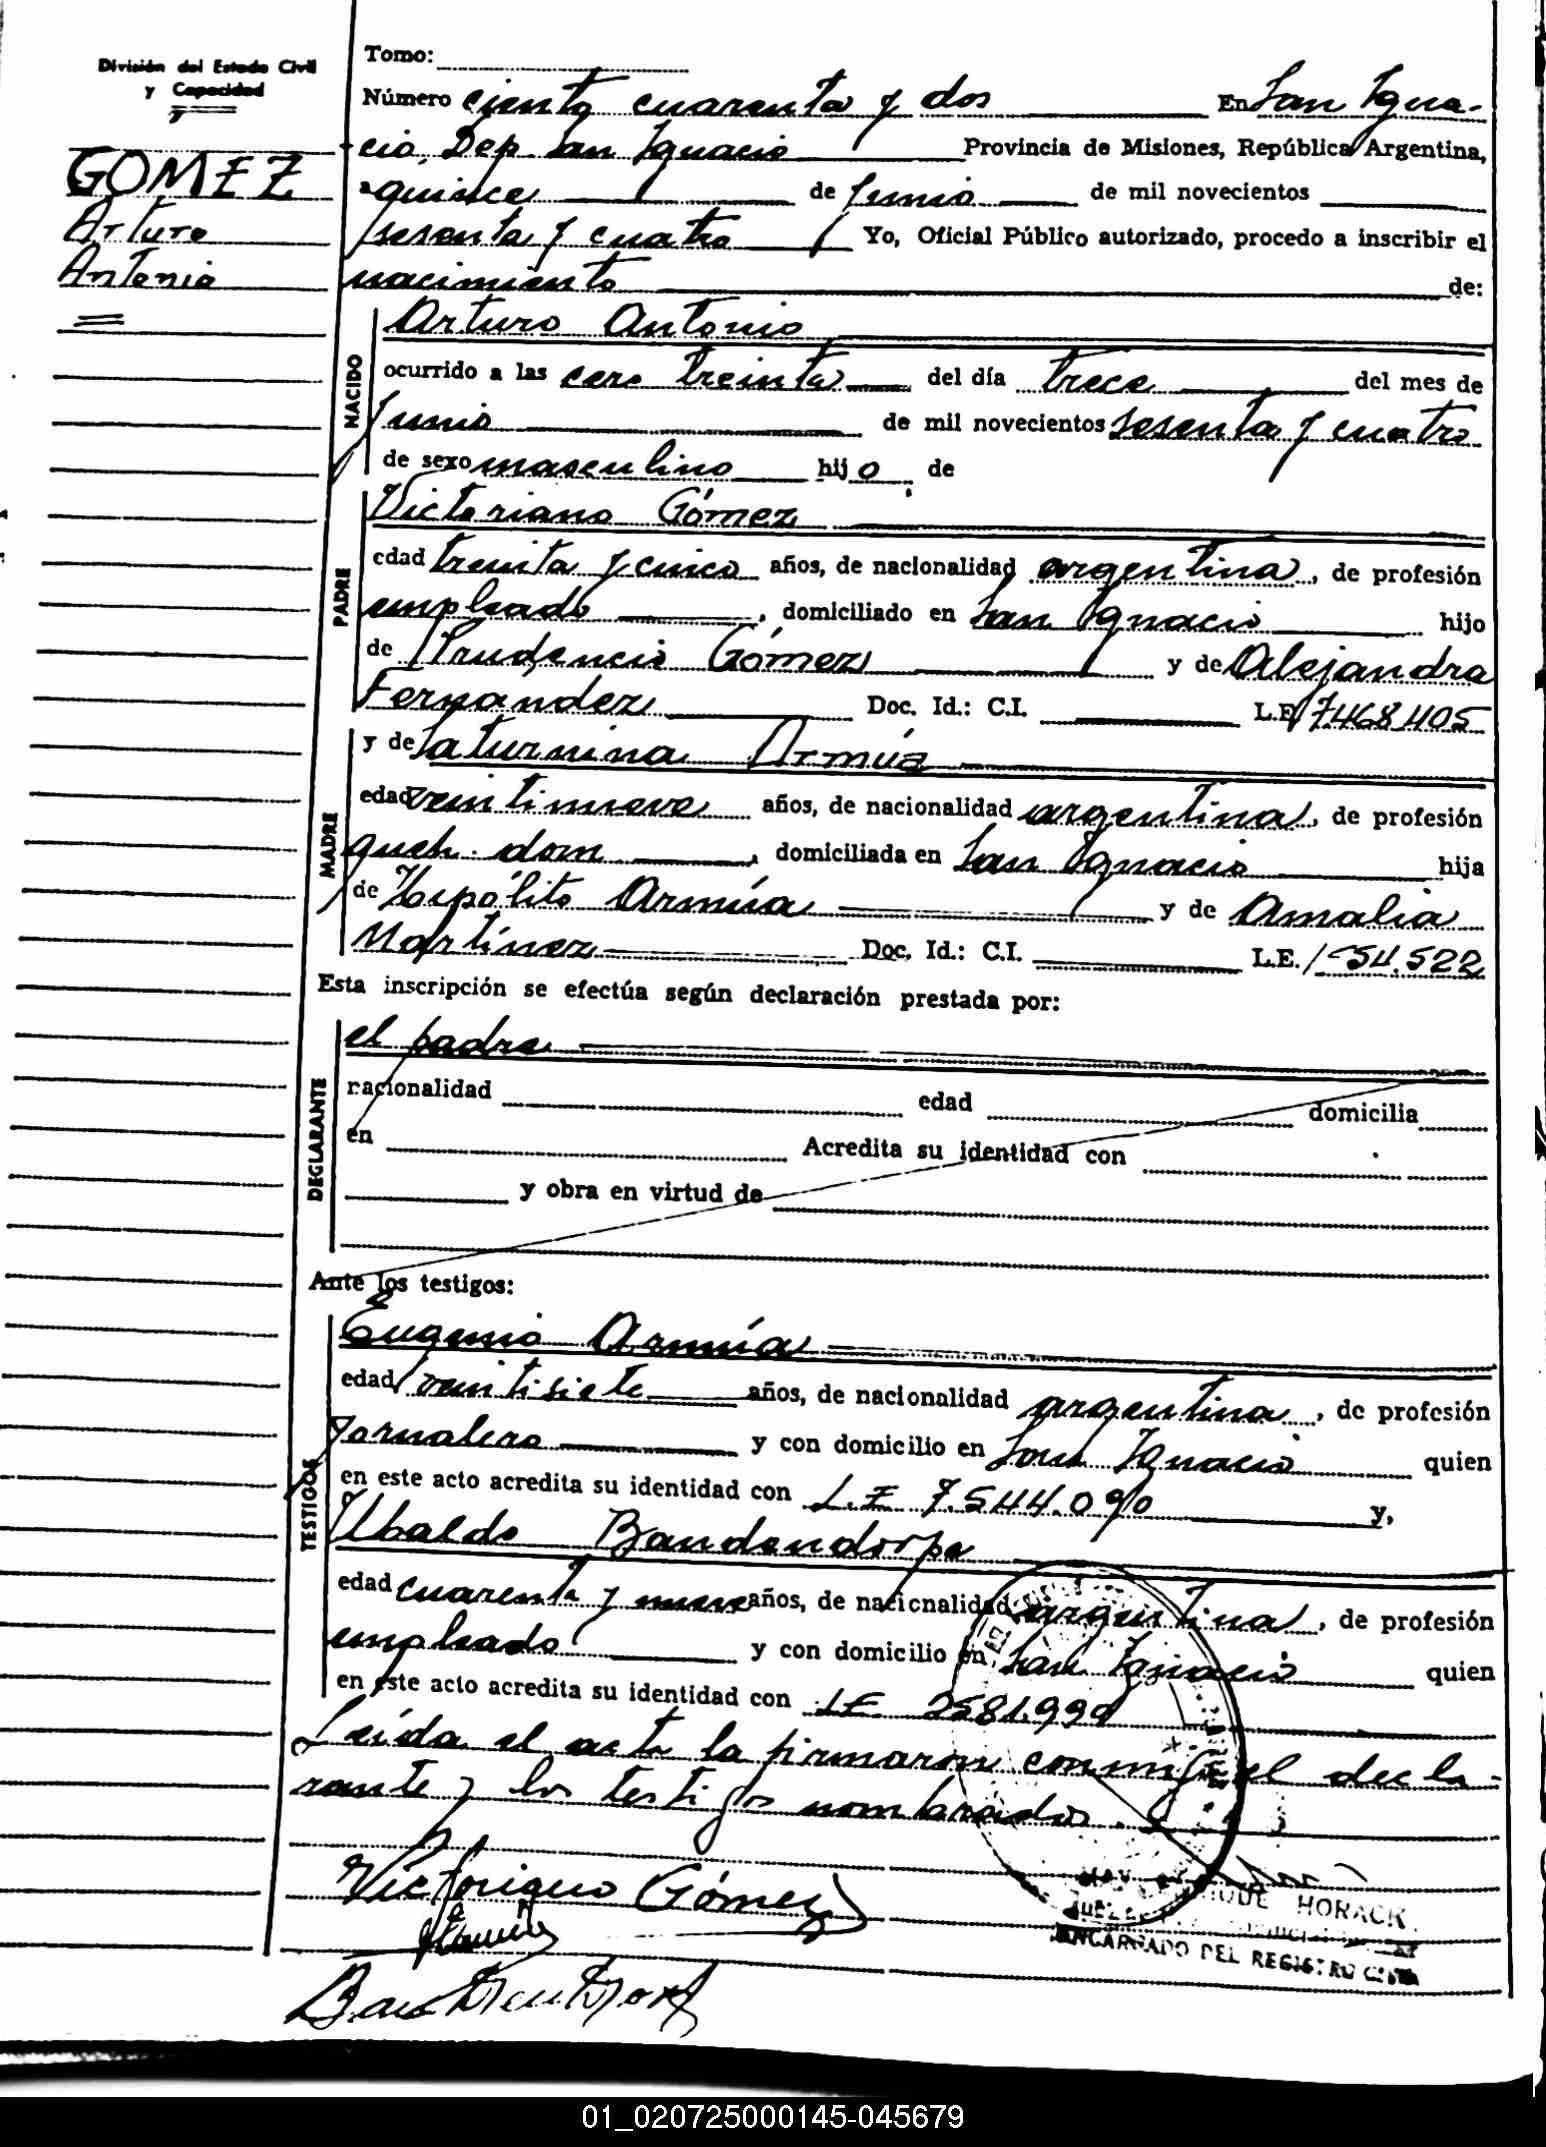 División del Estado Civil
y Capacidad
GOMEZ
Arturo
Antonio
Tomo:
Número ciento cuarenta y dos En San Igna-
cio, Dep. San Ignacio Provincia de Misiones, República Argentina,
a quince de Junio de mil novecientos
sesenta y cuatro Yo, Oficial Público autorizado, procedo a inscribir el
nacimiento de:
NACIDO
Arturo Antonio
ocurrido a las cero treinta del día trece del mes de
Junio de mil novecientos sesenta y cuatro
de sexo masculino hijo de
PADRE
Victoriano Gómez
edad treinta y cinco años, de nacionalidad argentina, de profesión
empleado, domiciliado en San Ignacio hijo
de Prudencio Gómez y de Alejandra
Fernández Doc. Id.: C.I. L.E. 7468405
MADRE
y de Saturnina Armúa
edad veintinueve años, de nacionalidad argentina, de profesión
queh. dom, domiciliada en San Ignacio hija
de Hipólito Armúa y de Amalia
Martínez Doc. Id.: C.I. L.E.
Esta inscripción se efectúa según declaración prestada por:
DECLARANTE
el padre
nacionalidad edad domicilia
en Acredita su identidad con
y obra en virtud de
Ante los testigos:
TESTIGOS
Eugenio Armúa
edad veintisiete años, de nacionalidad argentina, de profesión
Jornalero y con domicilio en San Ignacio quien
en este acto acredita su identidad con L.E 7.544.090 y,
Ubaldo Bandendorpe
edad cuarenta y nueve años, de nacionalidad argentina, de profesión
empleado y con domicilio en San Ignacio quien
en este acto acredita su identidad con LE
Leída el acta la firmaron conmigo el decla-
rante y los testigos nombrados.
Victoriano Gómez
HORACK
ENCARGADO DEL REGISTRO CIVIL
01_020725000145-045679